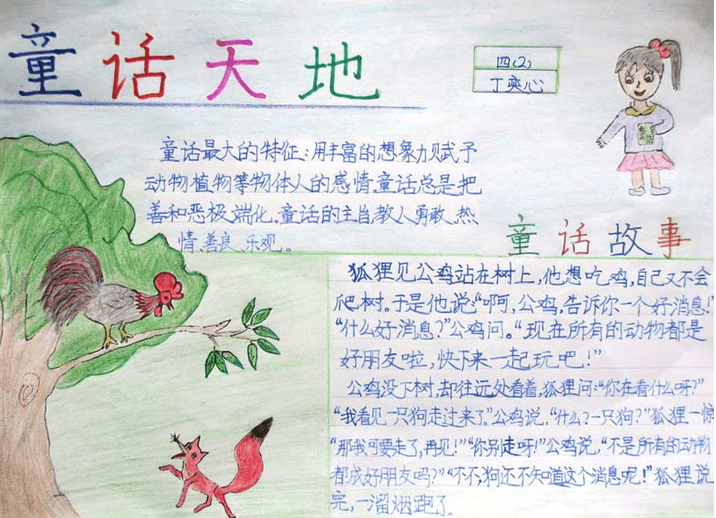 童话天地
四(2)
丁奕心
童话最大的特征:用丰富的想象力赋予
动物植物等物体人的感情.童话总是把
善和恶极端化.童话的主旨教人勇敢、热
情、善良、乐观。
童话故事
狐狸见公鸡站在树上,他想吃鸡,自己又不会
爬树。于是他说:“啊,公鸡,告诉你一个好消息!”
“什么好消息?”公鸡问。“现在所有的动物都是
好朋友啦,快下来一起玩吧!”
公鸡没下树,却往远处看着,狐狸问:“你在看什么呀?”
“我看见一只狗走过来了。”公鸡说,“什么?一只狗?”狐狸一惊
“那我可要走了,再见!”“你别走呀!”公鸡说,“不是所有的动物
都成好朋友吗?”“不不,狗还不知道这个消息呢!”狐狸说
完,一溜烟跑了.